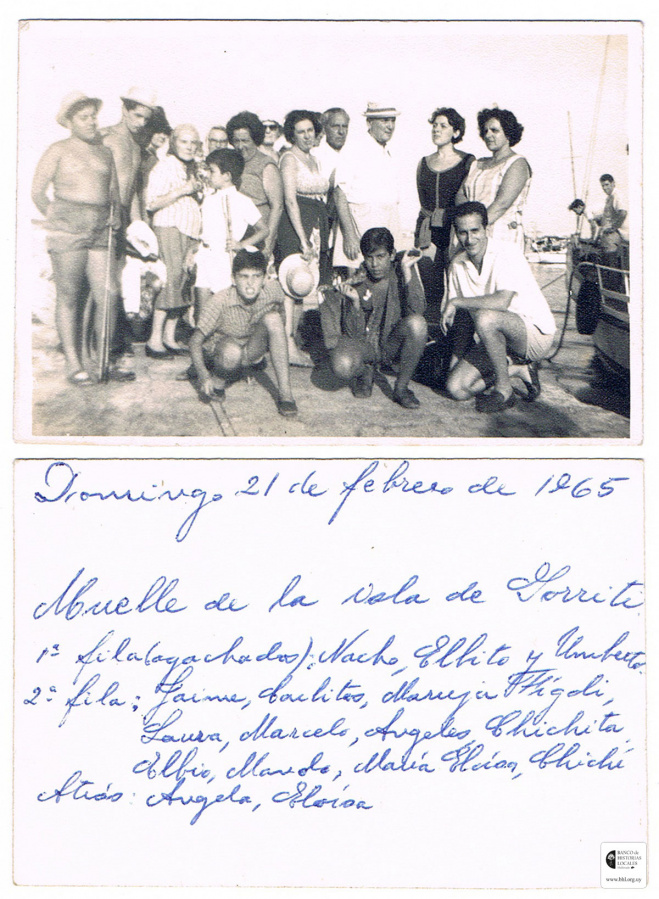 Domingo 21 de febrero de 1965
Muelle de la isla de Gorriti
1ª fila (agachados): Nacho, Elbito y Umberto.
2ª fila: Jaime, Carlitos, Maruja Fígoli,
Laura, Marcelo, Angeles, Chichita,
Elbio, Mando, María Eloísa, Chiché
Atrás: Angela, Eloísa
BANCO de
HISTORIAS
LOCALES
www.bhl.org.uy